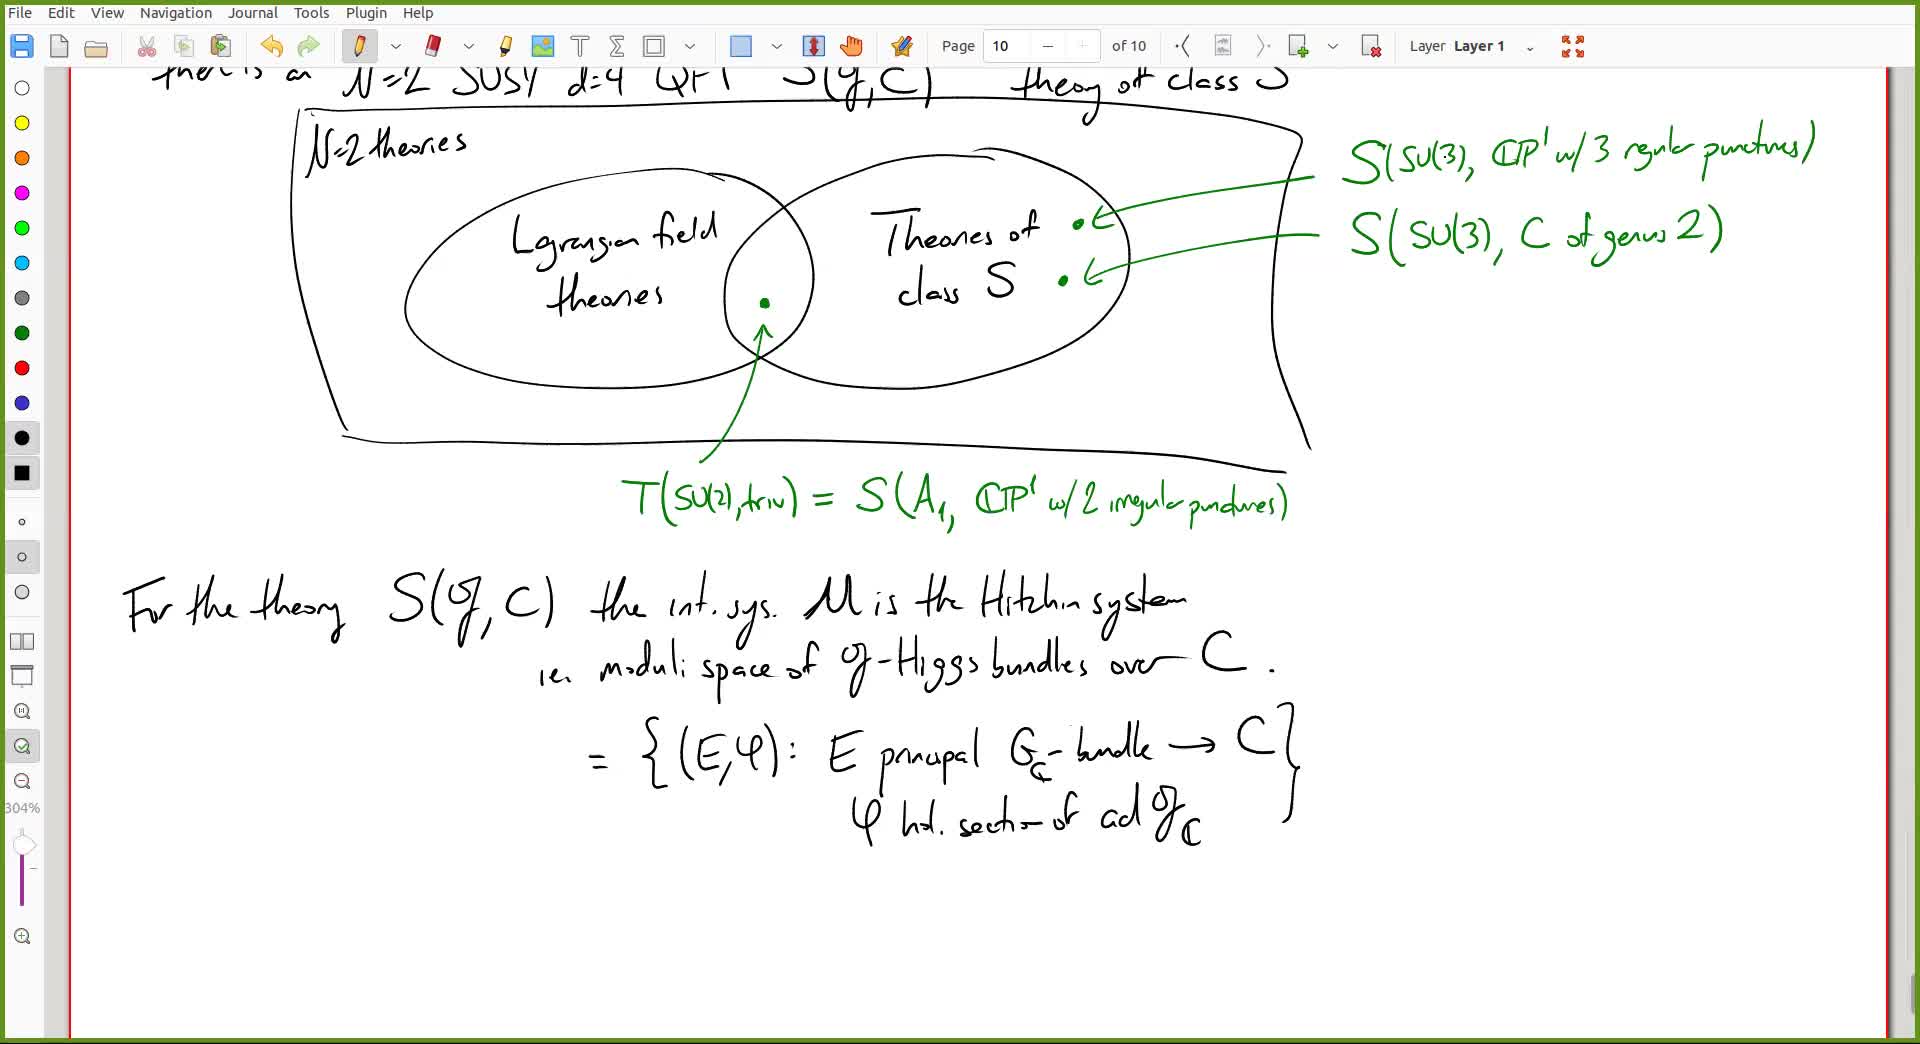 File Edit View Navigation Journal Tools Plugin Help
Page 10 of 10 Layer Layer 1
there is an N=2 SUSY d=4 QFT S(𝔤, C) theory of class S
N=2 theories
S(SU(3), ℂP¹ w/ 3 regular punctures)
Lagrangian field theories
Theories of class S
S(SU(3), C of genus 2)
T(SU(2), triv) = S(A₁, ℂP¹ w/ 2 irregular punctures)
For the theory S(𝔤, C) the int. sys. M is the Hitchin system
i.e. moduli space of 𝔤-Higgs bundles over C.
= {(E, φ): E principal G_ℂ-bundle → C}
φ hol. section of ad 𝔤_ℂ
304%